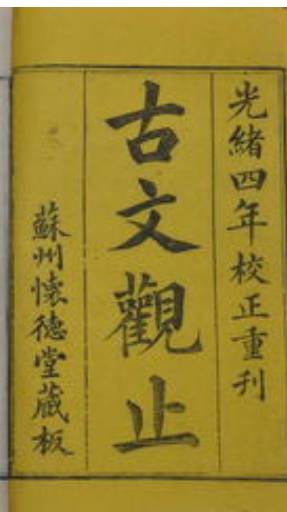 光緒四年校正重刊
古文觀止
蘇州懷德堂藏板